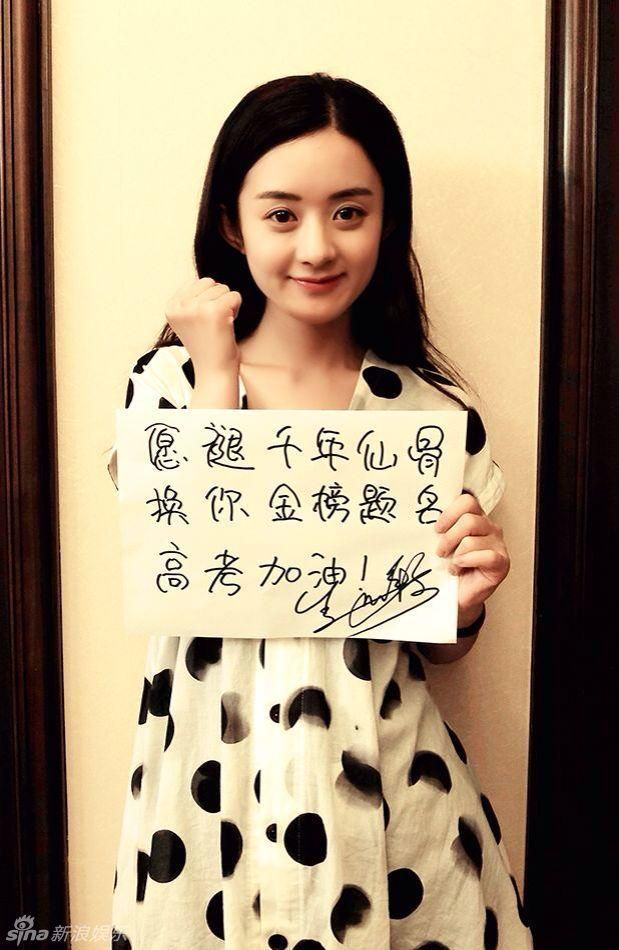 愿褪千年仙骨
换你金榜题名
高考加油!
sina新浪娱乐